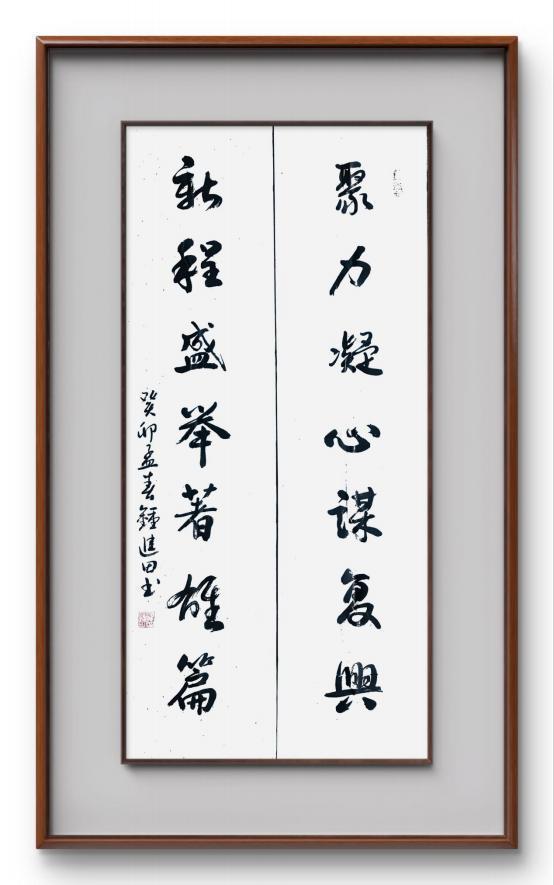 聚力凝心謀复興
新程盛举著雄篇
癸卯孟春鍾進田书